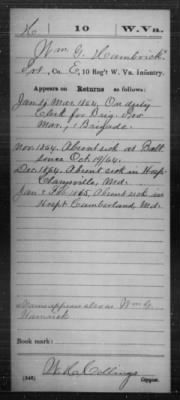 H | 10 | W. Va.
Wm. G. Hambrick
Pvt, Co. E, 10 Reg't W. Va. Infantry.
Appears on Returns as follows:
Jan. & Mar. 1864, On duty
Clerk for Brig. Pro
Mar., Brigade.
Nov. 1864. Absent sick at Balt
since Oct 19/64.
Dec. 1864. Absent sick in Hosp
Md.
Jan. & Feb. 1865, Absent sick in
Hosp't Cumberland, Md.
Name appears also as Wm G.
Hamrick
Book mark:
(546) Copyist.